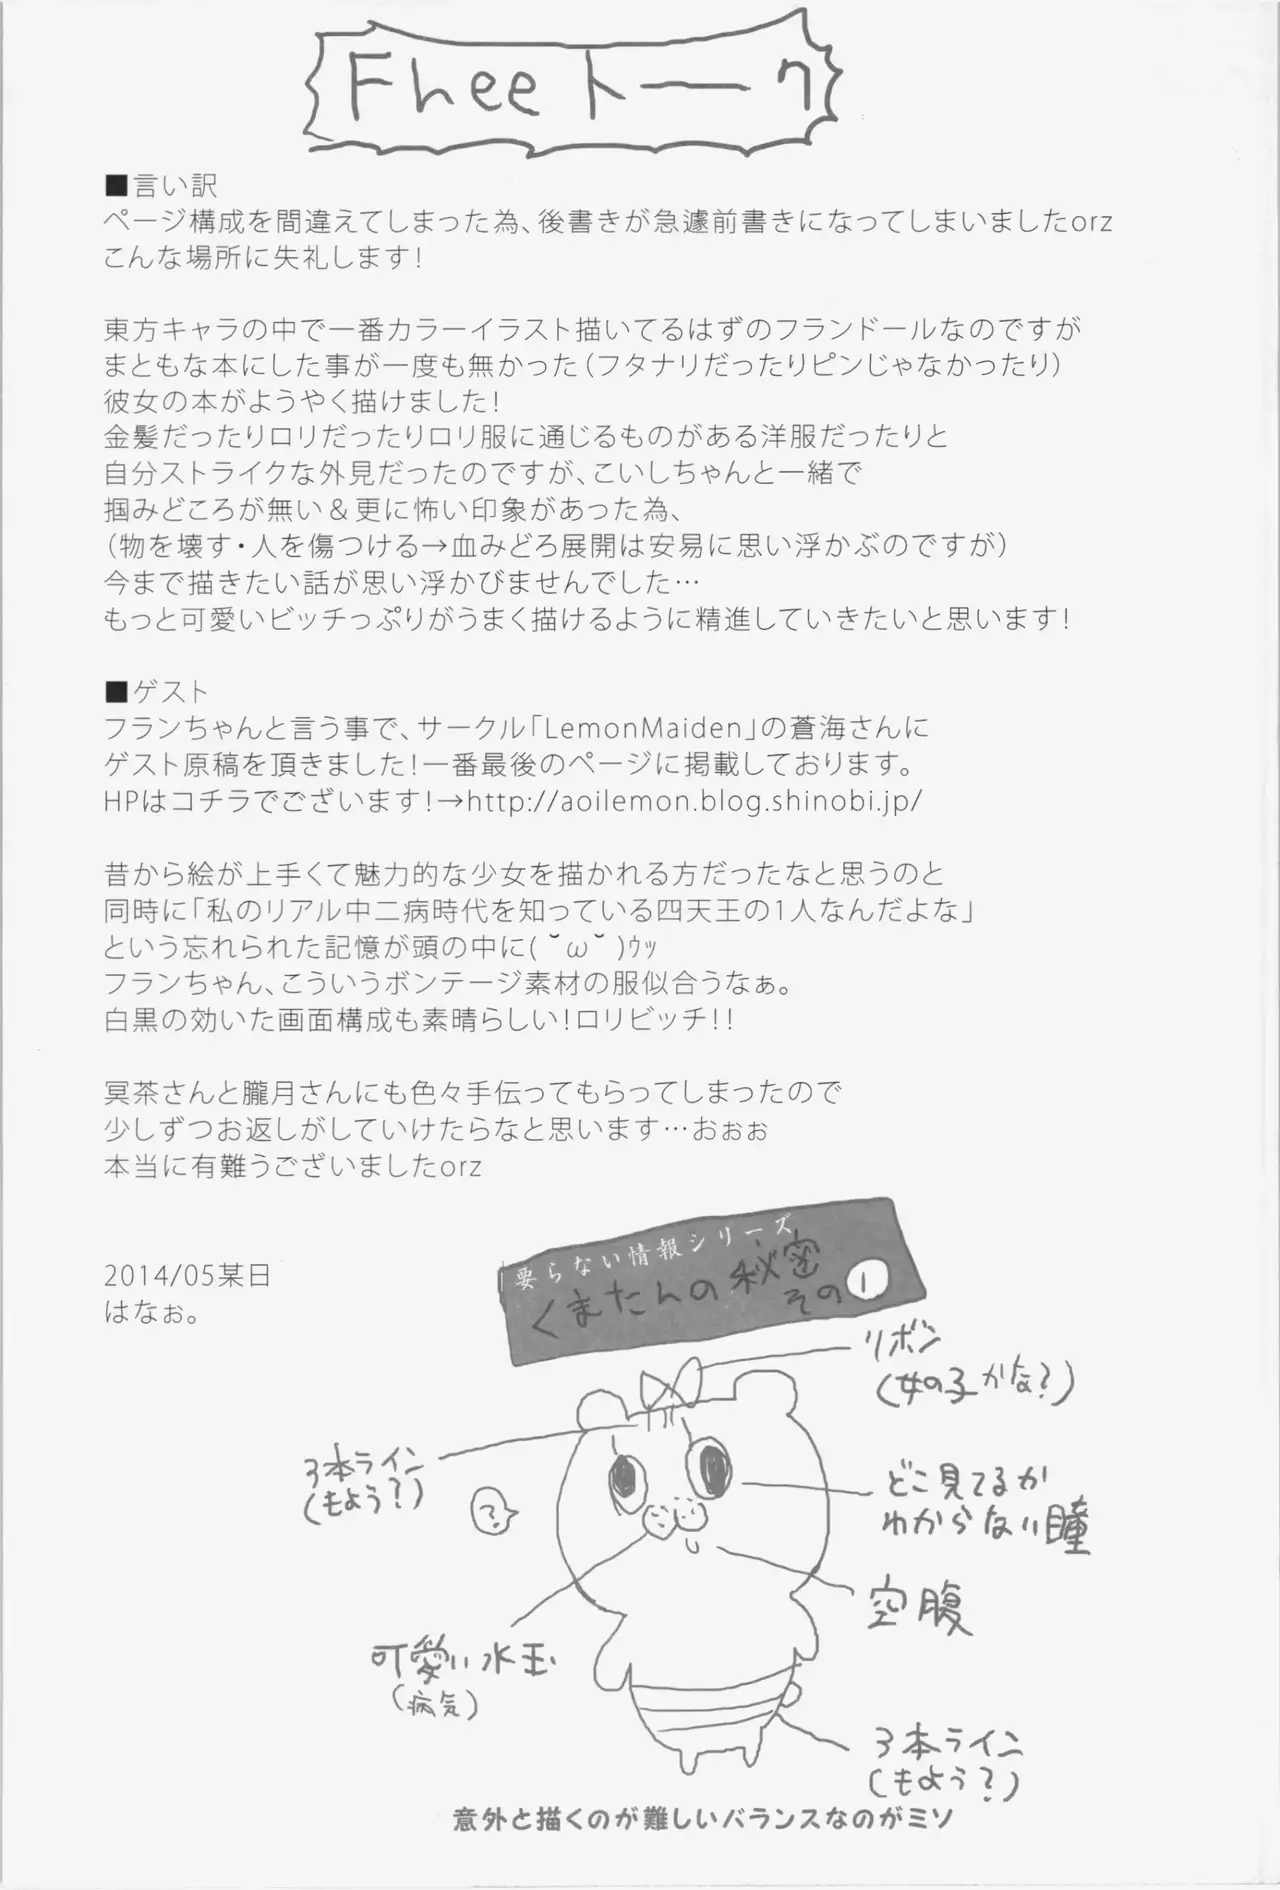 Fhee トーク
■言い訳
ページ構成を間違えてしまった為、後書きが急遽前書きになってしまいましたorz
こんな場所に失礼します!
東方キャラの中で一番カラーイラスト描いてるはずのフランドールなのですが
まともな本にした事が一度も無かった(フタナリだったりピンじゃなかったり)
彼女の本がようやく描けました!
金髪だったりロリだったりロリ服に通じるものがある洋服だったりと
自分ストライクな外見だったのですが、こいしちゃんと一緒で
掴みどころが無い&更に怖い印象があった為、
(物を壊す・人を傷つける→血みどろ展開は安易に思い浮かぶのですが)
今まで描きたい話が思い浮かびませんでした…
もっと可愛いビッチっぷりがうまく描けるように精進していきたいと思います!
■ゲスト
フランちゃんと言う事で、サークル「LemonMaiden」の蒼海さんに
ゲスト原稿を頂きました!一番最後のページに掲載しております。
HPはコチラでございます!→http://aoilemon.blog.shinobi.jp/
昔から絵が上手くて魅力的な少女を描かれる方だったなと思うのと
同時に「私のリアル中二病時代を知っている四天王の1人なんだよな」
という忘れられた記憶が頭の中に( ˘ω˘ )ｳｯ
フランちゃん、こういうボンテージ素材の服似合うなぁ。
白黒の効いた画面構成も素晴らしい!ロリビッチ!!
冥茶さんと朧月さんにも色々手伝ってもらってしまったので
少しずつお返しがしていけたらなと思います…おぉぉ
本当に有難うございましたorz
2014/05某日
はなぉ。
要らない情報シリーズ
くまたんの秘密
その1
リボン
(女の子かな?)
3本ライン
(もよう?)
?
どこ見てるか
わからない瞳
空腹
可愛い水玉
(病気)
3本ライン
(もよう?)
意外と描くのが難しいバランスなのがミソ